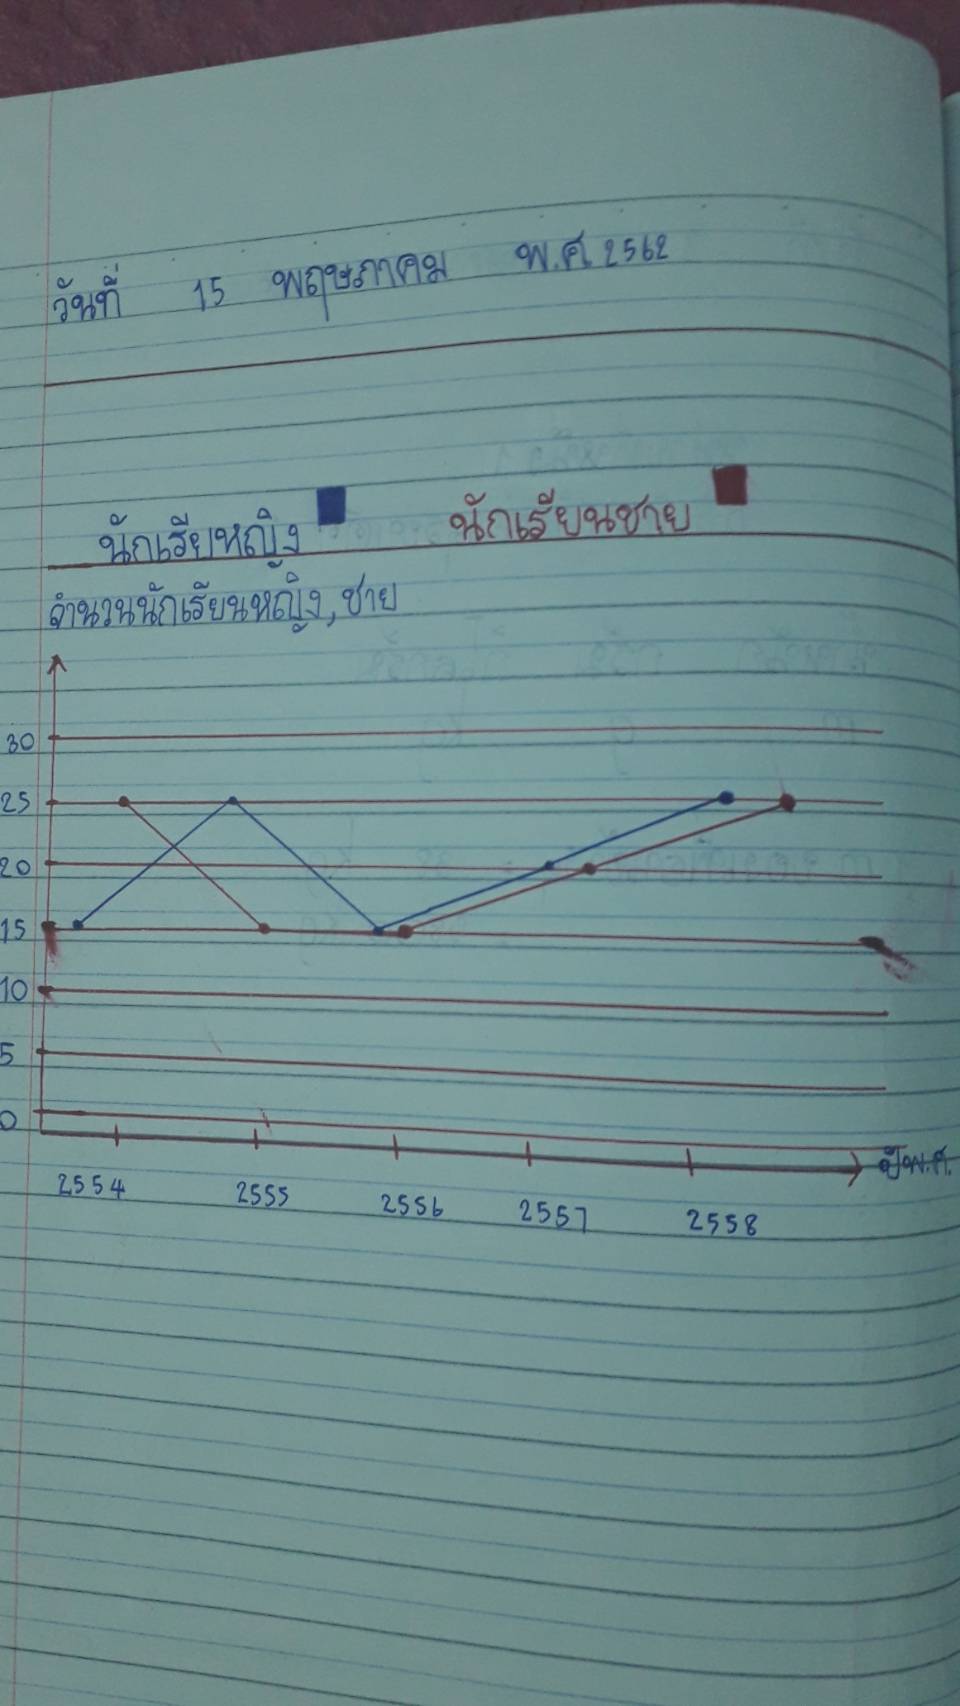 วันที่ 15 พฤษภาคม พ.ศ. 2562
นักเรียหญิง นักเรียนชาย
จำนวนนักเรียนหญิง, ชาย
30
25
20
15
10
5
0
ปีพ.ศ.
2554 2555 2556 2557 2558